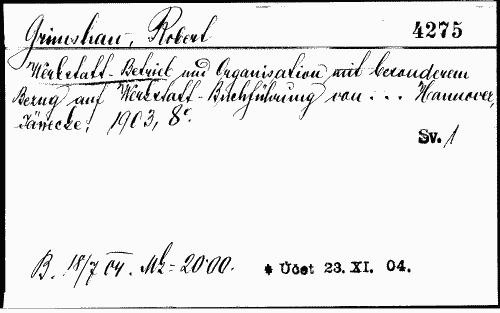 Grimshaw, Robert 4275
Werkstatt-Betrieb und Organisation mit besonderem
Bezug auf Werkstatt-Buchführung von... Hannover,
Jänecke, 1903, 8°.
Sv. 1
B. 18/7 04. Mk = 20·00. * Účet 23. XI. 04.